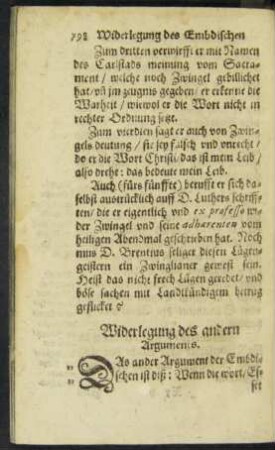 198 Widerlegung des Embdischen
Zum dritten verwirfft er mit Namen
des Carlstads meinung vom Sacra-
ment / welche noch Zwingel gebillichet
hat / vn̄ jm zeugnis gegeben / er erkenne die
Warheit / wiewol er die Wort nicht in
rechter Ordnung setzt.
Zum vierdten sagt er auch von Zwin-
gels deutung / sie sey falsch vnd vnrecht /
do er die Wort Christi / das ist mein Leib /
also drehe: das bedeute mein Leib.
Auch (fürs fünffte) berufft er sich da-
selbst austrücklich auff D. Luthers schriff-
ten / die er eigentlich vnd ex professo wi-
der Zwingel vnd seine adhærenten vom
heiligen Abendmal geschrieben hat. Noch
mus D. Brentius seliger diesen Lügen-
geistern ein Zwinglianer gewest sein.
Heist das nicht frech Lügen geredet / vnd
böse sachen mit Landtkündigem betrug
geflicket?
Widerlegung des andern
Arguments.
DAs ander Argument der Embdi-
schen ist diß: Wenn die wort / Es-
set